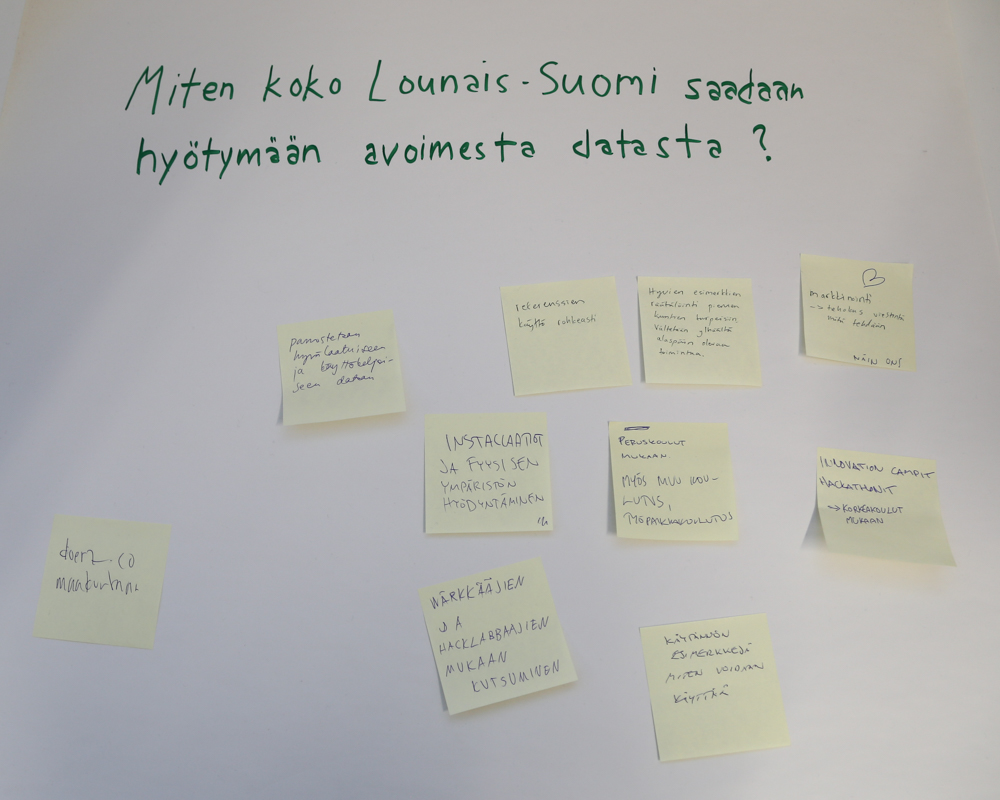 Miten koko Lounais-Suomi saadaan
hyötymään avoimesta datasta?
panostetaan
hyvälaatuiseen
ja käyttökelpoi-
seen dataan
referenssien
käyttö rohkeasti
Hyvien esimerkkien
räätälöinti pienen
kunnan tarpeisiin.
Vältetään ylhäältä
alaspäin olevaa
toimintaa.
markkinointi
-> tehokas viestintä
mitä tehdään
NÄIN ON!
INSTALLAATIOT
JA FYYSISEN
YMPÄRISTÖN
HYÖDYNTÄMINEN
PERUSKOULUT
MUKAAN.
MYÖS MUU KOU-
LUTUS,
TYÖPAIKKAKOULUTUS
INNOVATION CAMPIT
HACKATHONIT
-> KORKEAKOULUT
MUKAAN
doerz.co
WÄRKKÄÄJIEN
JA
HACKLABBAAJIEN
MUKAAN
KUTSUMINEN
KÄYTÄNNÖN
ESIMERKKEJÄ
MITEN VOIDAAN
KÄYTTÄÄ